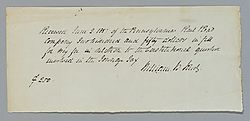 Received June 2 1881 of the Pennsylvania Rail Road
Company Two hundred and fifty dollars in full
for my fee in relation to the Constitutional question
involved in the Tonnage Tax
William M.
$250